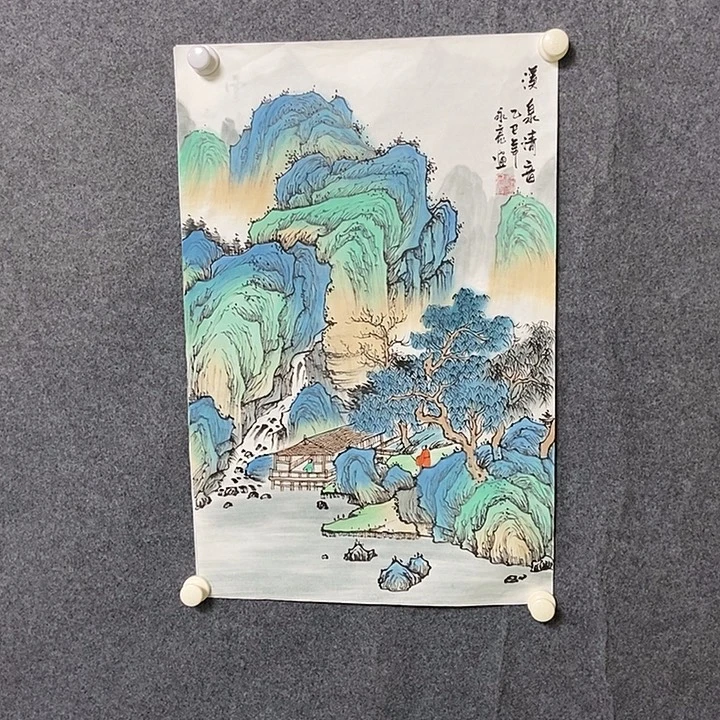 溪泉清音
乙巳年
永亮画